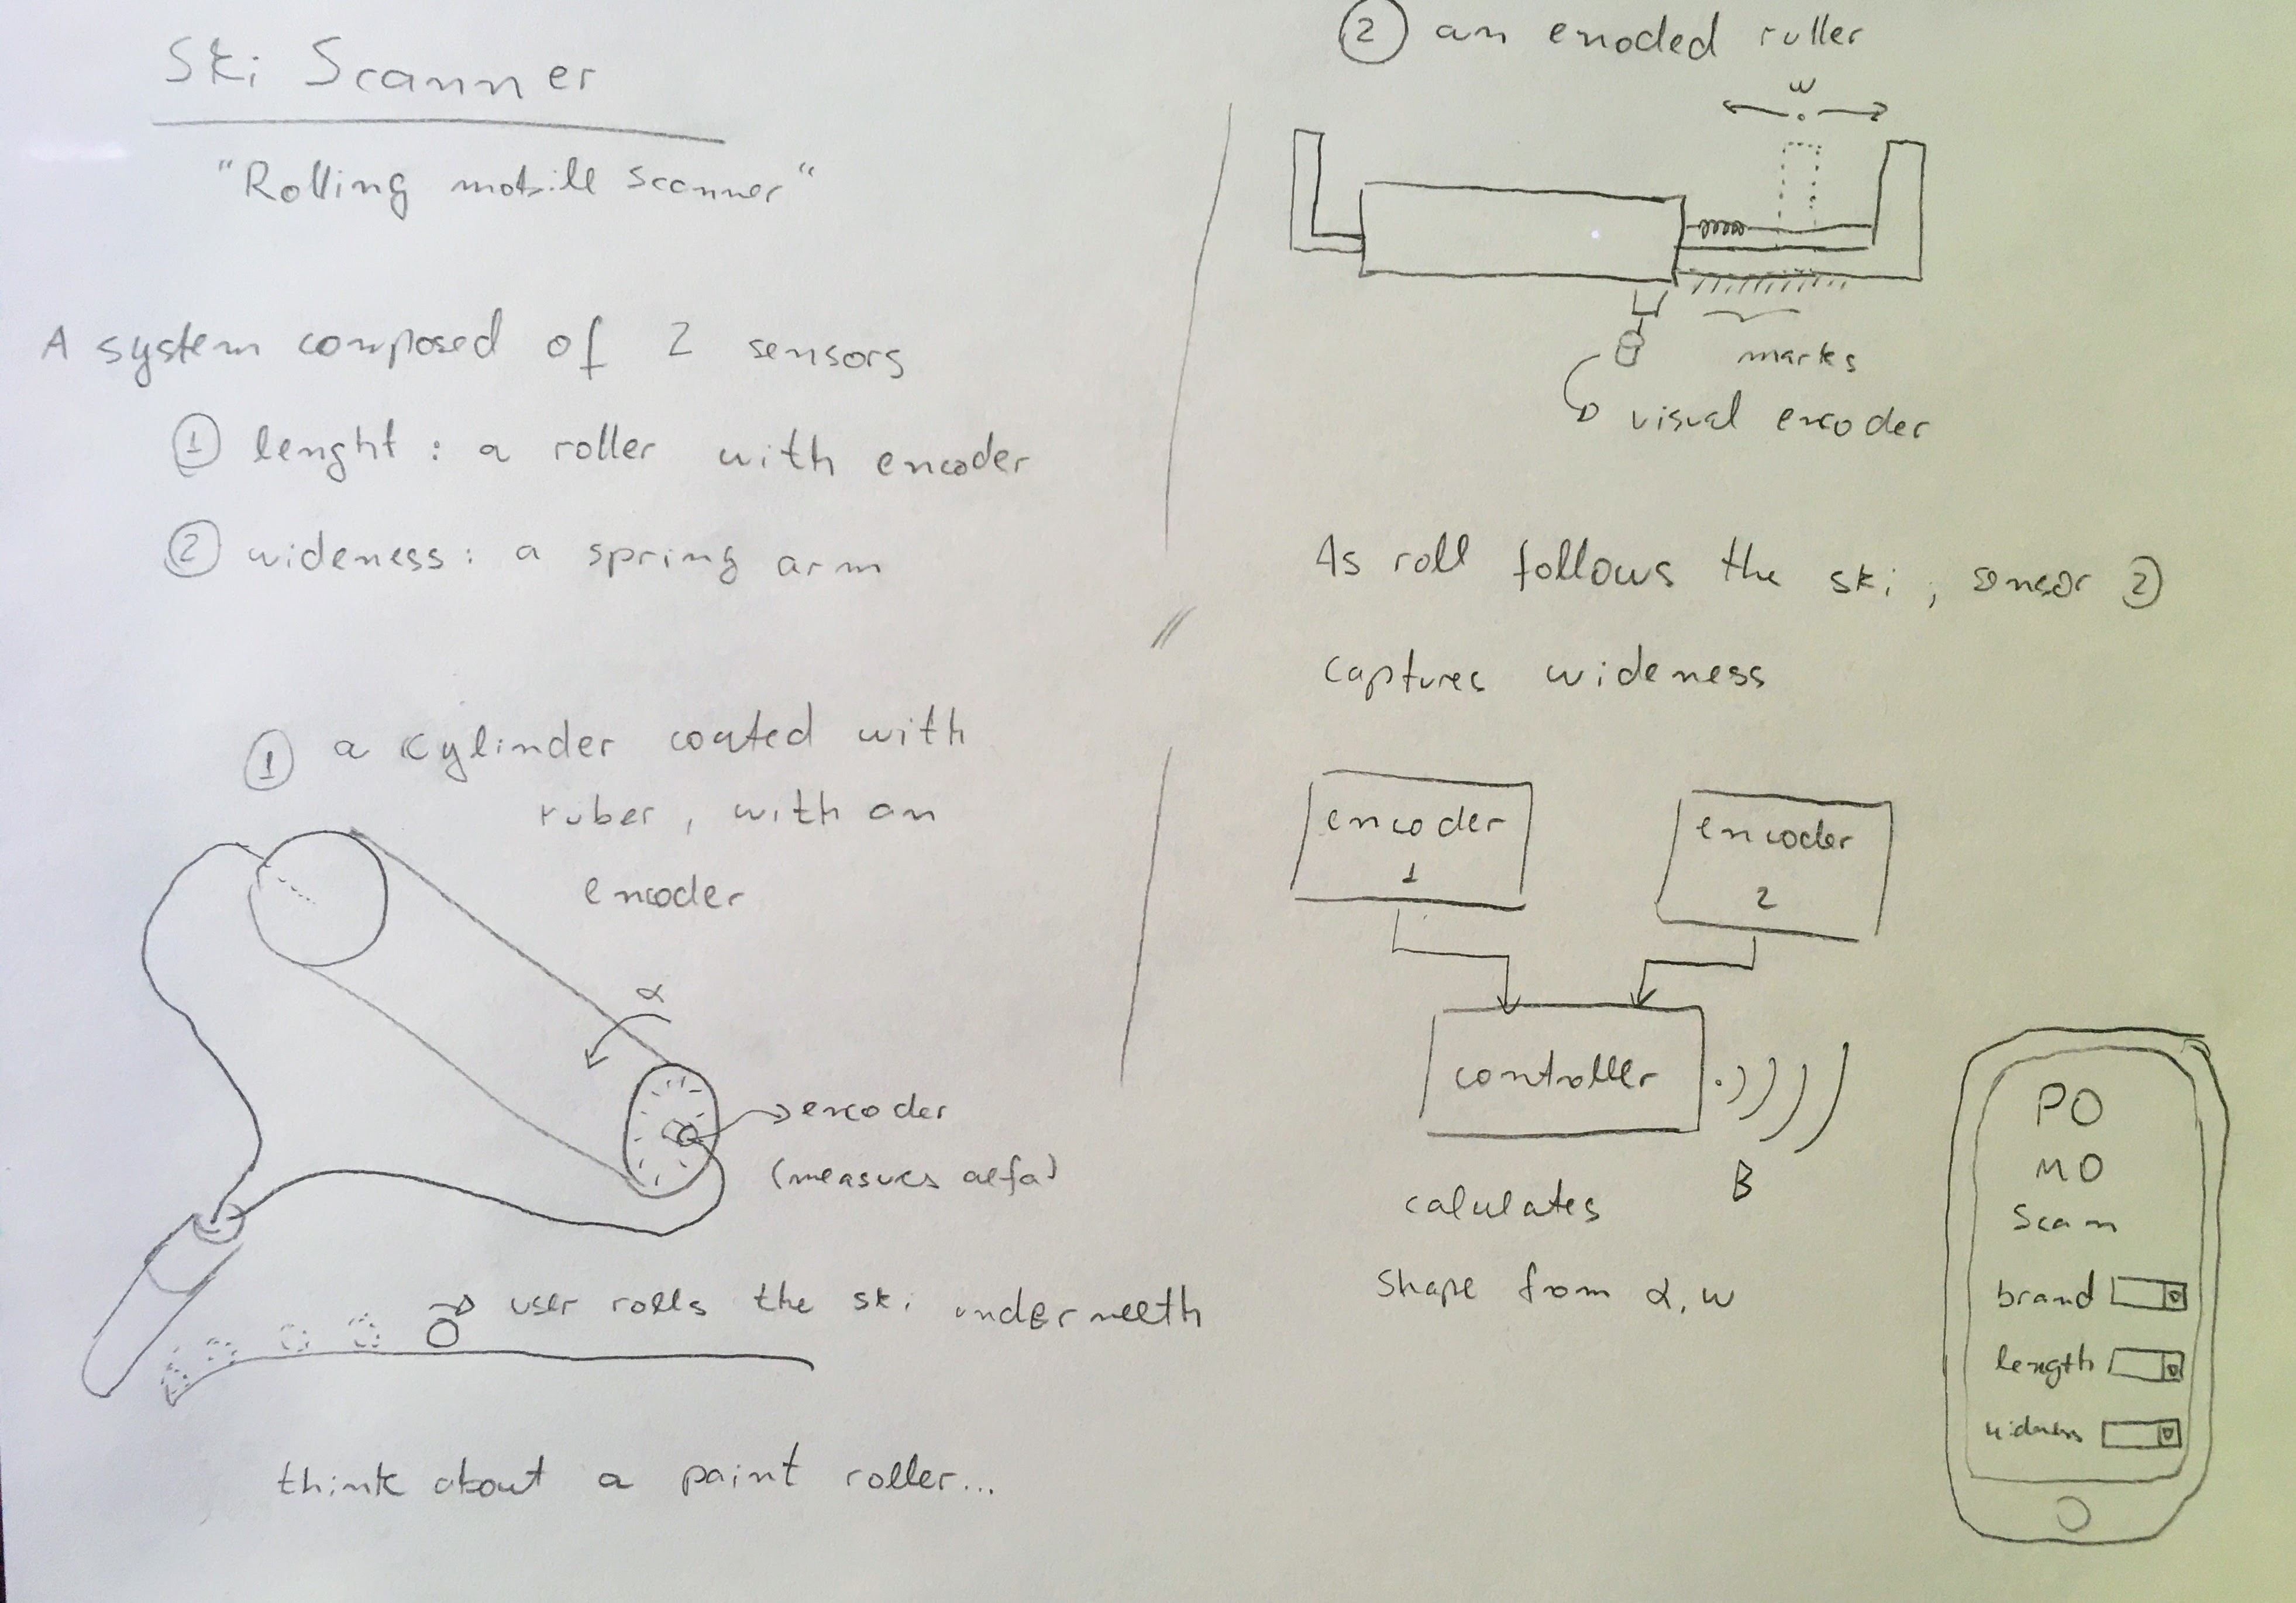 Ski Scanner
"Rolling mobile scanner"
A system composed of 2 sensors
1 lenght : a roller with encoder
2 wideness : a spring arm
1 a cylinder coated with
ruber, with an
encoder
α
encoder
(measures alfa)
user rolls the ski underneeth
think about a paint roller...
2 an enoded roller
w
marks
visual encoder
As roll follows the ski, sensor 2
captures wideness
encoder
1
encoder
2
controller
B
calculates
shape from α, w
PO
MO
Scan
brand
length
wideness